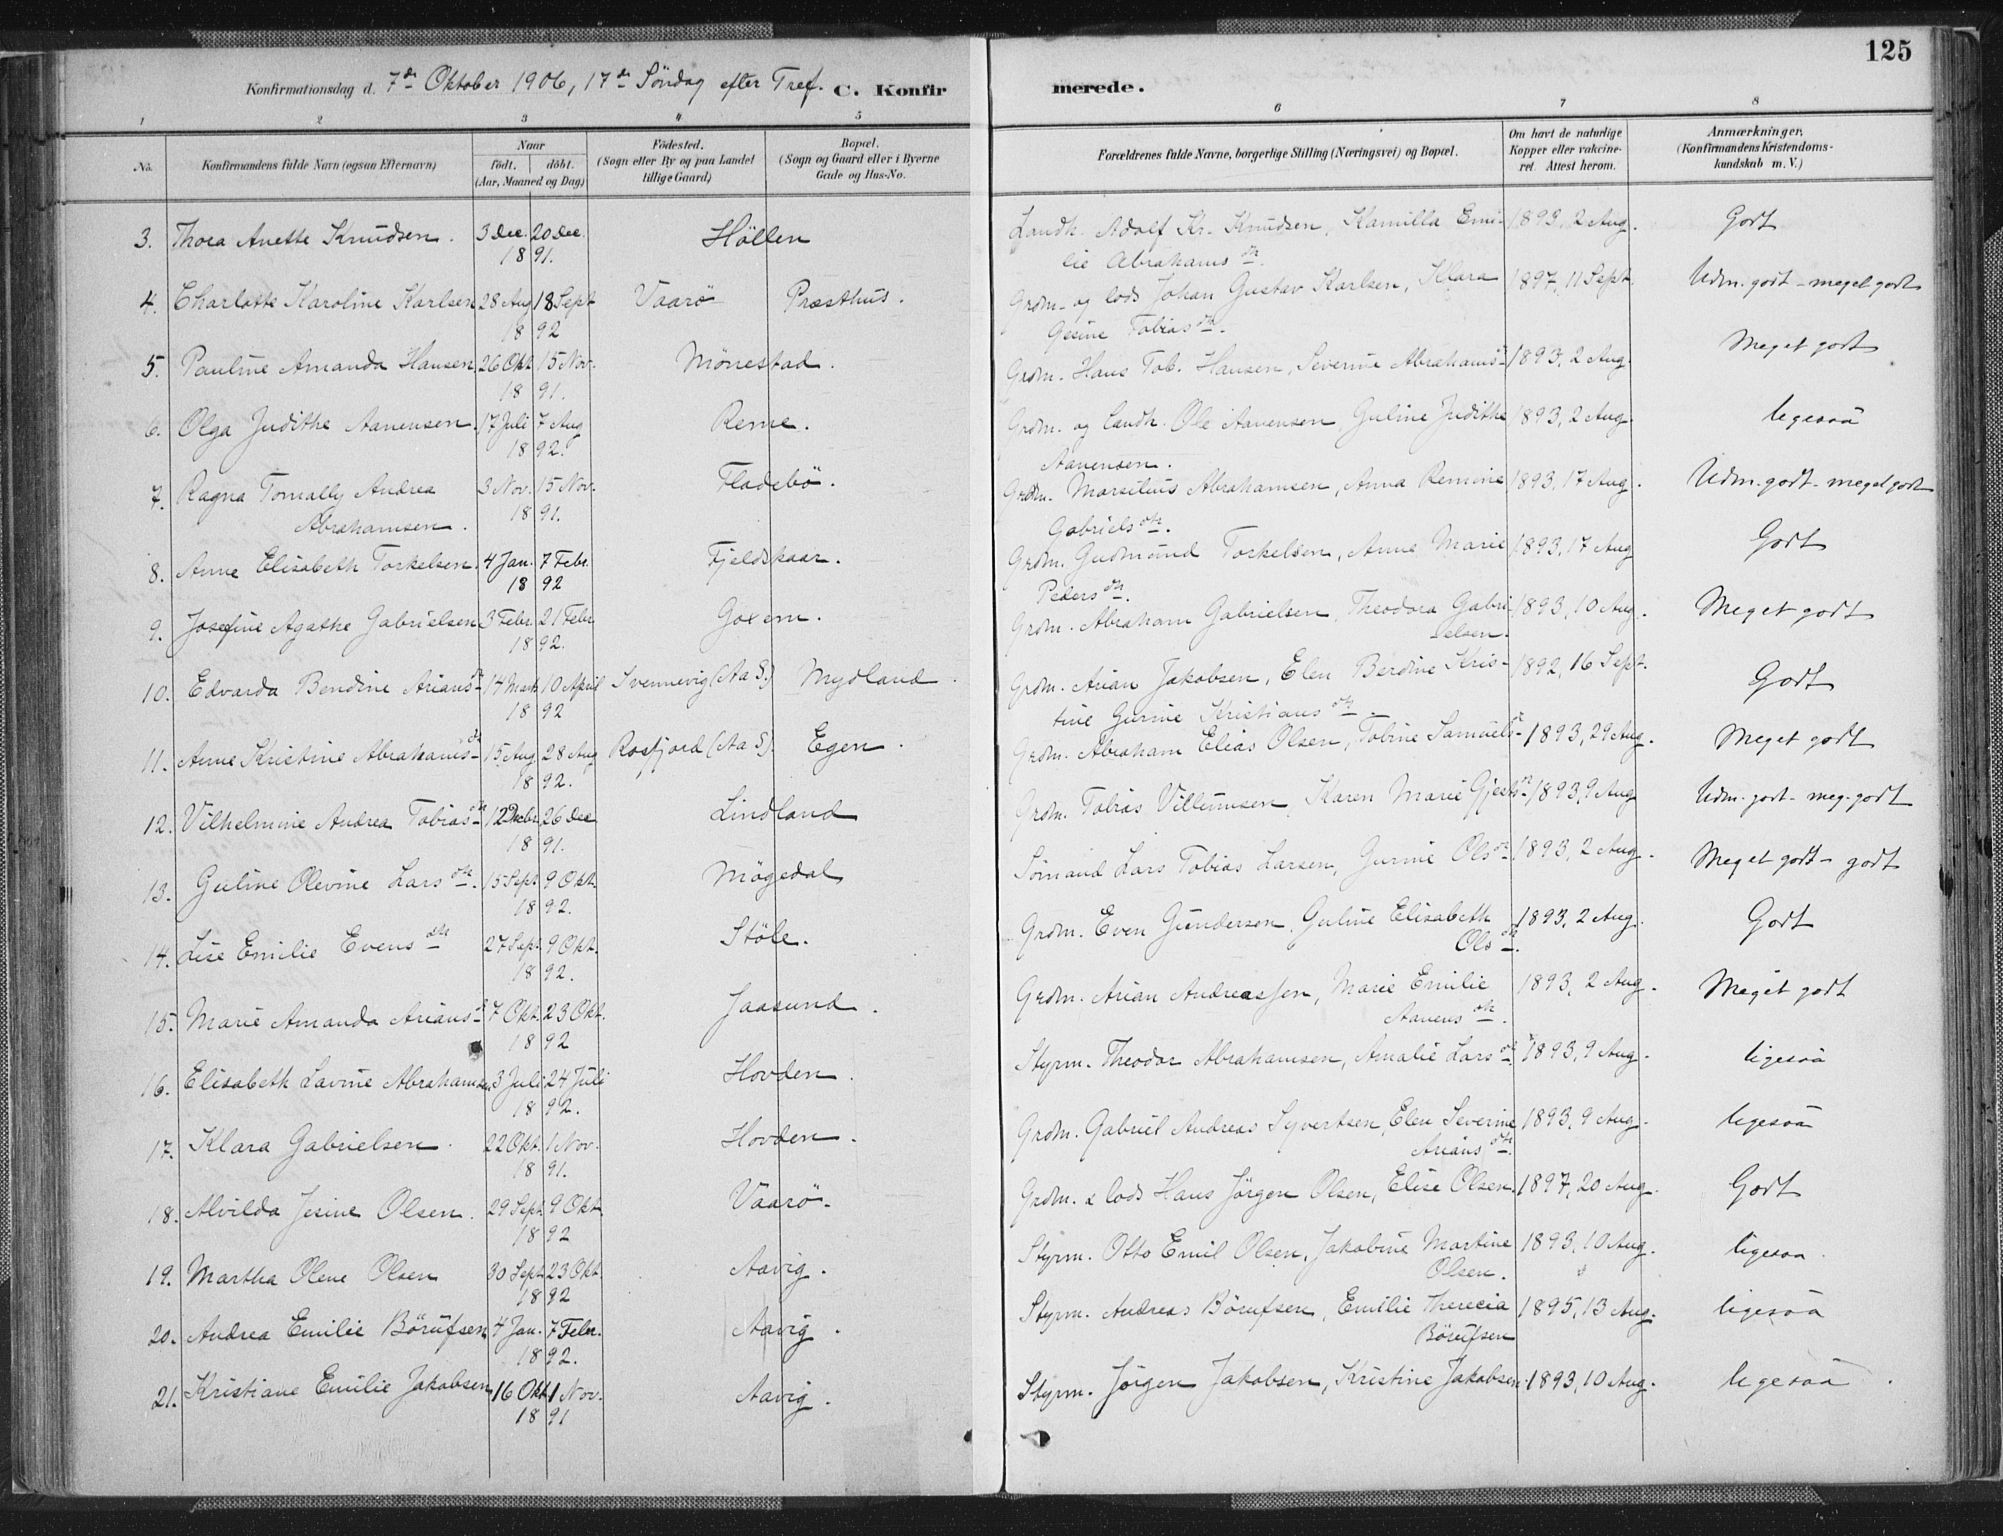 125
Konfirmationsdag d. 7de Oktober 1906, 17de Söndag efter Tref. C. Konfirmerede.
1 2 3 4 5 6 7 8
No. Konfirmandens fulde Navn (ogsaa Efternavn) Naar födt. döbt. (Aar, Maaned og Dag) Födested. (Sogn eller By og paa Landet tillige Gaard) Bopæl. (Sogn og Gaard eller i Byerne Gade og Hus-No. Forældrenes fulde Navne, borgerlige Stilling (Næringsvei) og Bopæl. Om havt de naturlige Kopper eller vakcineret. Attest herom. Anmærkninger. (Konfirmandens Kristendomskundskab m. V.)
3. Thora Anette Knudsen. 3 Dec. 20 Dec. 1891. Höllen Landh. Adolf Kr. Knudsen, Kamilla Emilie Abrahamsdtr. 1893, 2 Aug. Godt
4. Charlotte Karoline Karlsen 28 Aug 18 Sept 1892 Vaarö Præsthus. Grdm. og lods Johan Gustav Karlsen, Klara Gesine Tobiasdtr. 1897, 11 Sept. Udm. godt - meget godt
5. Pauline Amanda Hansen 26 Okt. 15 Nov. 1891. Mönestad. Grdm. Hans Tob. Hansen, Severine Abrahamsdtr 1893, 2 Aug. Meget godt
6. Olga Judithe Aanensen. 17 Juli 7 Aug 1892. Reme. Grdm. og Landh. Ole Aanensen, Guline Judithe Aanensen. 1893, 2 Aug. ligesaa
7. Ragna Tomally Andrea Abrahamsen. 3 Nov. 15 Nov. 1891. Fladebö. Grdm. Marsilius Abrahamsen, Anna Remine Gabrielsdtr. 1893, 17 Aug. Udm. godt - meget godt
8. Anne Elisabeth Torkelsen. 4 Jan. 7 Febr. 1892 Fjeldskaar. Grdm. Gudmund Torkelsen, Anne Marie Pedersdtr. 1893, 17 Aug Godt
9. Josefine Agathe Gabrielsen 3 Febr. 21 Febr 1892. Goxem. Grdm. Abraham Gabrielsen, Theodora Gabrielsen. 1893, 10 Aug. Meget godt
10. Edvarda Bendine Ariansdtr 14 Marts 10 April 1892 Svennevig (Aa S.) Mydland. Grdm. Arian Jakobsen, Elen Berdine Kristine Gurine Kristiansdtr. 1892, 16 Sept. Godt
11. Anne Kristine Abrahamsdtr 15 Aug 28 Aug 1892. Rosfjord (Aa S). Egen. Grdm. Abraham Elias Olsen, Tobine Samuelsdtr 1893, 29 Aug. Meget godt
12. Vilhelmine Andrea Tobiasdtr 12 Decbr. 26 Dec 1891. Lindland Grdm. Tobias Villumsen, Karen Marie 1893, 9 Aug Udm. godt - meg. godt
13. Guline Olevine Larsdtr. 15 Sept. 9 Okt. 1892. Mögedal Sömand Lars Tobias Larsen, Gurine Olsdtr 1893, 2 Aug. Meget godt - godt
14. Lise Emilie Evensdtr 27 Sept. 9 Okt. 1892. Stöle. Grdm. Even Gundersen, Guline Elisabeth Olsdtr. 1893, 2 Aug. Godt
15. Marie Amanda Ariansdtr 7 Okt. 23 Okt. 1892 Jaasund. Grdm. Arian Andreassen, Marie Emilie Aanensdtr. 1893, 2 Aug. Meget godt
16. Elisabeth Lavine Abrahamsen 3 Juli 24 Juli 1892. Hovden. Styrm. Theodor Abrahamsen, Amalie Larsdtr. 1893, 9 Aug. ligesaa
17. Klara Gabrielsen. 22 Okt. 1 Nov. 1891. Hovden. Grdm. Gabriel Andreas Syvertsen, Elen Severine Ariansdtr. 1893, 9 Aug. ligesaa
18. Alvilda Jesine Olsen. 29 Sept. 9 Okt. 1892 Vaarö. Grdm. & lods Hans Jörgen Olsen, Elise Olsen. 1897, 20 Aug. Godt
19. Martha Olene Olsen 30 Sept. 23 Okt. 1892 Aavig. Styrm. Otto Emil Olsen, Jakobine Martine Olsen. 1893, 10 Aug. ligesaa.
20. Andrea Emilie Börufsen 4 Jan. 7 Febr. 1892. Aavig. Styrm. Andreas Börufsen, Emilie Therecia Börufsen 1895, 13 Aug. ligesaa
21. Kristiane Emilie Jakobsen 16 Okt. 1 Nov. 1891 Aavig. Styrm. Jörgen Jakobsen, Kristine Jakobsen. 1893, 10 Aug. ligesaa.